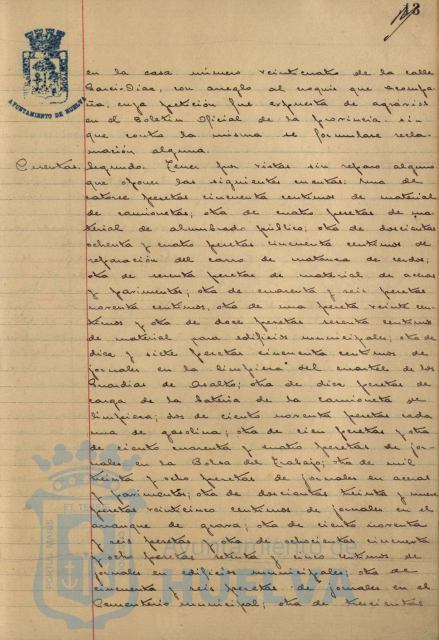 13
AYUNTAMIENTO DE HUELVA
en la casa número veinticuatro de la calle
García Díaz, con arreglo al croquis que acompa-
ña, cuya petición fue expuesta de agravios
en el Boletín Oficial de la provincia sin
que contra la misma se formulase recla-
mación alguna.
Cuentas. Segundo. Tener por vistas sin reparo alguno
que oponer las siguientes cuentas: una de
catorce pesetas cincuenta centimos de material
de camionetas; otra de cuatro pesetas de ma-
terial de alumbrado público; otra de doscientas
ochenta y cuatro pesetas cincuenta centimos de
reparación del carro de matanza de cerdos;
otra de pesetas de material de aceras
y pavimentos; otra de cuarenta y seis pesetas
noventa centimos, otra de una peseta veinte cen-
timos y otra de doce pesetas centimos
de material para edificios municipales; otra de
diez y siete pesetas cincuenta centimos de
jornales en la limpieza del cuartel de los
Guardias de Asalto; otra de diez pesetas de
carga de la batería de la camioneta de
limpieza; dos de ciento noventa pesetas cada
una de gasolina; otra de cien pesetas y otra
de ciento cuarenta y cuatro pesetas de jor-
nales en la Bolsa del Trabajo; otra de mil
treinta y ocho pesetas de jornales en aceras
y pavimentos; otra de doscientas treinta y nueve
pesetas veinticinco centimos de jornales en el
arranque de grava; otra de ciento noventa
y seis pesetas y otra de ochocientas cincuenta
y ocho pesetas y cinco centimos de
jornales en edificios municipales; otra de
cincuenta y seis pesetas de jornales en el
Cementerio municipal; otra de trescientas
Ayuntamiento de
HUELVA
PORTUS MARIS ET TE